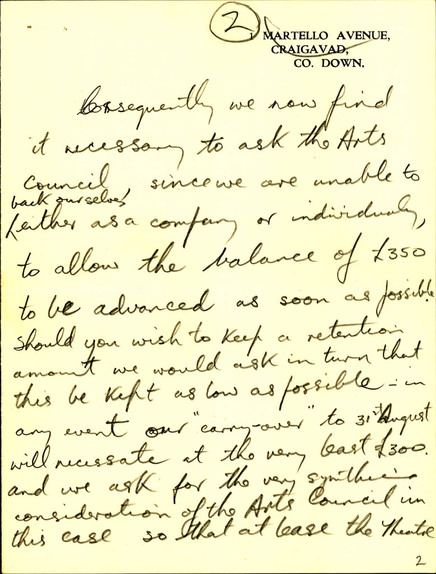 2
1 MARTELLO AVENUE,
CRAIGAVAD,
CO. DOWN.
Consequently we now find
it necessary to ask the Arts
Council, since we are unable to
back ourselves,
either as a company or individually,
to allow the balance of £350
to be advanced as soon as possible.
Should you wish to keep a retention
amount we would ask in turn that
this be kept as low as possible - in
any event our "carry-over" to 31st August
will necessate at the very least £300.
and we ask for the very
consideration of the Arts Council in
this case so that at lease the Theatre
2